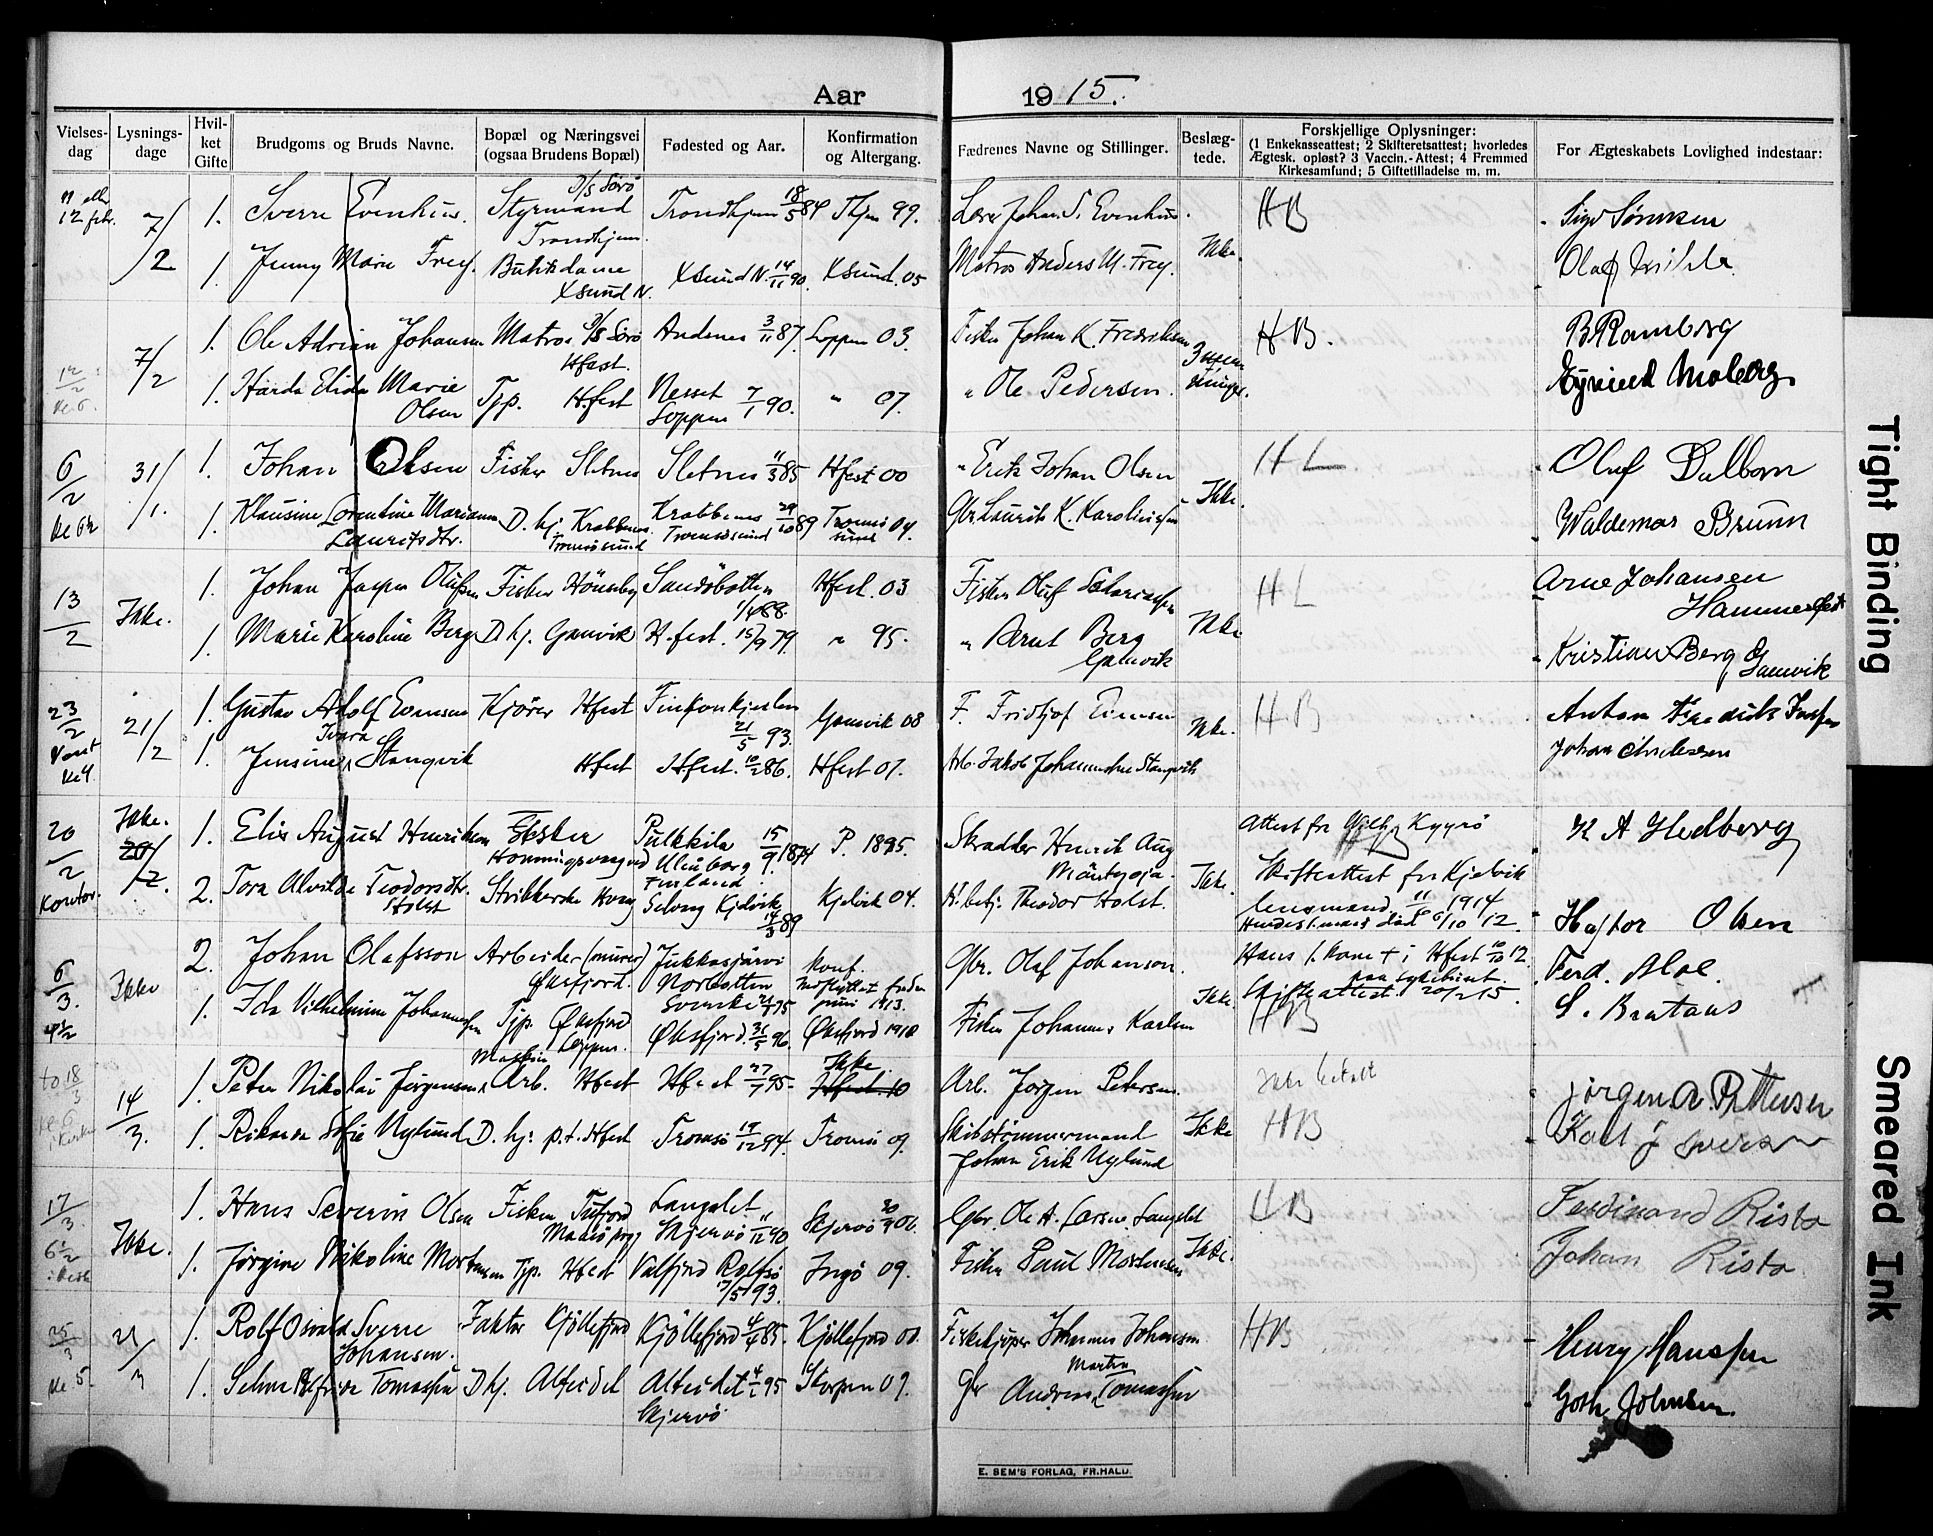 Aar 1915.
Vielses-dag
Lysnings-dage
Hvil-ket Gifte
Brudgoms og Bruds Navne.
Bopæl og Næringsvei (ogsaa Brudens Bopæl)
Fødested og Aar.
Konfirmation og Altergang.
Fædrenes Navne og Stillinger.
Beslæg-tede.
Forskjellige Oplysninger:
(1 Enkekasseattest; 2 Skifteretsattest; hvorledes
Ægtesk. opløst? 3 Vaccin.-Attest; 4 Fremmed
Kirkesamfund; 5 Giftetilladelse m. m.
For Ægteskabets Lovlighed indestaar:
11 eller 12 febr. 7/2 1. Sverre Evenhus. D/S Sörö Styrmand Trondhjem. Trondhjem 18/5 84 Thjem 99. Johan S. Evenhus. HB
1. Jenny Marie Frey. Butikdame Xsund N. Xsund N. 14/11 90. Xsund. 05 Matros Anders M. Frey. Ikke. Olaf
7/2 1. Ole Adrian Johansen Matros D/S Sörö Hfest. Andsnes 3/11 87. Loppen 03. Fisker Johan K. Fredriksen HB. B Ramberg
1. Elida Marie Olsen Tjp. Hfest Nesset Loppen 7/1 90. " 07. " Ole Pedersen. Eyvind Moberg
6/2 31/1. 1. Johan Olsen Fisker Sletnes Sletnes 11/3 85 Hfest 00 " Erik Johan Olsen HL Oluf Dalbom
1. Klausine Lorentine Mariane Lauritsdtr. D. hj. Krabbenes Tromsösund Krabbenes Tromsösund 29/10 89 Tromsösund 04. Gbr. Laurits K. Karoliussen Ikke. Waldemar Brunn
13/2 Ikke. 1. Johan Jasper Olufsen Fisker Hönseby Sandöbotten 1/4 88. Hfest. 03 Fisker Oluf HL Arne Johansen Hammerfest
1. Marie Karoline Berg D hj. Gamvik Hfest. 15/9 79. " 95. " Bernt Berg Gamvik Ikke Kristian Berg Gamvik
23/2 21/2 1. Gustav Adolf Evensen Kjörer Hfest Finkonkjeilen 21/5 93. Gamvik 08 F. Fridtjof HB Anton Fredrik
1. Jensine Tvara Stangvik Hfest Hfest. 10/2 86. Hfest 01. Arb. Jakob Johannsen Stangvik Ikke. Johan Andersen
20/2 Kontor. Ikke. 20/2. 1. Elis August Henriksen Fisker Honningsvaag Pulkkila Uleåborg Finland 15/9 1874 P. 1895. Skrædder Henrik Aug Mäntyoja. Attest fra Kyyrö K A Hedberg
2. Tora Alvilde Teodorsdtr. Holst Strikkerske Kjelvik 14/3 89 Kjelvik 04. Theodor Holst. Ikke. Skifteattest fra Kjelvik lensmand 11/11 1914 Hendes 1. mand död 6/10 12. Olsen
6/3. Ikke 2. Johan Olafsson Arbeider (murer) Öksfjord. Jukkasjärvi Norbotten Sverrike 75 Konf. 1913. Gbr. Olaf Johanson. Hans 1. kone + i Hfest 10/10 12. Skifteattest. 20/2 15. HB Ferd. Moe.
1. Ida Vilhelmine Johannessen Tjp. Öksfjord Loppen. Öksfjord. 31/5 96. Öksfjord 1910 Fisker Johannes Karlsen Ikke. S. Brataas
18/3 14/3. 1. Peter Nikolai Jörgensen Maskin Arb. Hfest Hfest 27/7 95. Ikke. Hfest. 10 Arb. Jörgen Petersen. Ikke betalt HB Jörgen A. Pettersen
1. Sofie Nylund D. hj. p.t. Hfest Tromsö 17/12 94. Tromsö 09. Skibstömmermand Johan Erik Nylund Ikke Karl J Iversen
17/3. Ikke. 1. Hans Severin Olsen Fisker Tufjord Maasö prgj. Langslet Skjervö 11/12 90 Skjervö 06. Gbr. Ole A. Larsen, Langslet HB Ferdinand Risto
1. Jörgine Nikoline Mortensen Tjp. Hfest Valfjord Rolfsö 17/5 93. Ingö 09. Fisker Paul Mortensen Ikke. Johan Risto
25/3 kl 5. 21/3 1. Rolf Osvald Sverre Johansen. Faktor Kjöllefjord Kjöllefjord 4/4 85. Kjöllefjord 00. Fiskekjöper Johannes Johansen HB Henry Hanssen
1. Selma Elfrida Tomassen D hj. Alteidet Alteidet 4/1 95 Skjervö Gbr Andreas Martin Tomassen Johnsen.
E. SEM'S FORLAG, FR.HALD.
Tight Binding
Smeared Ink